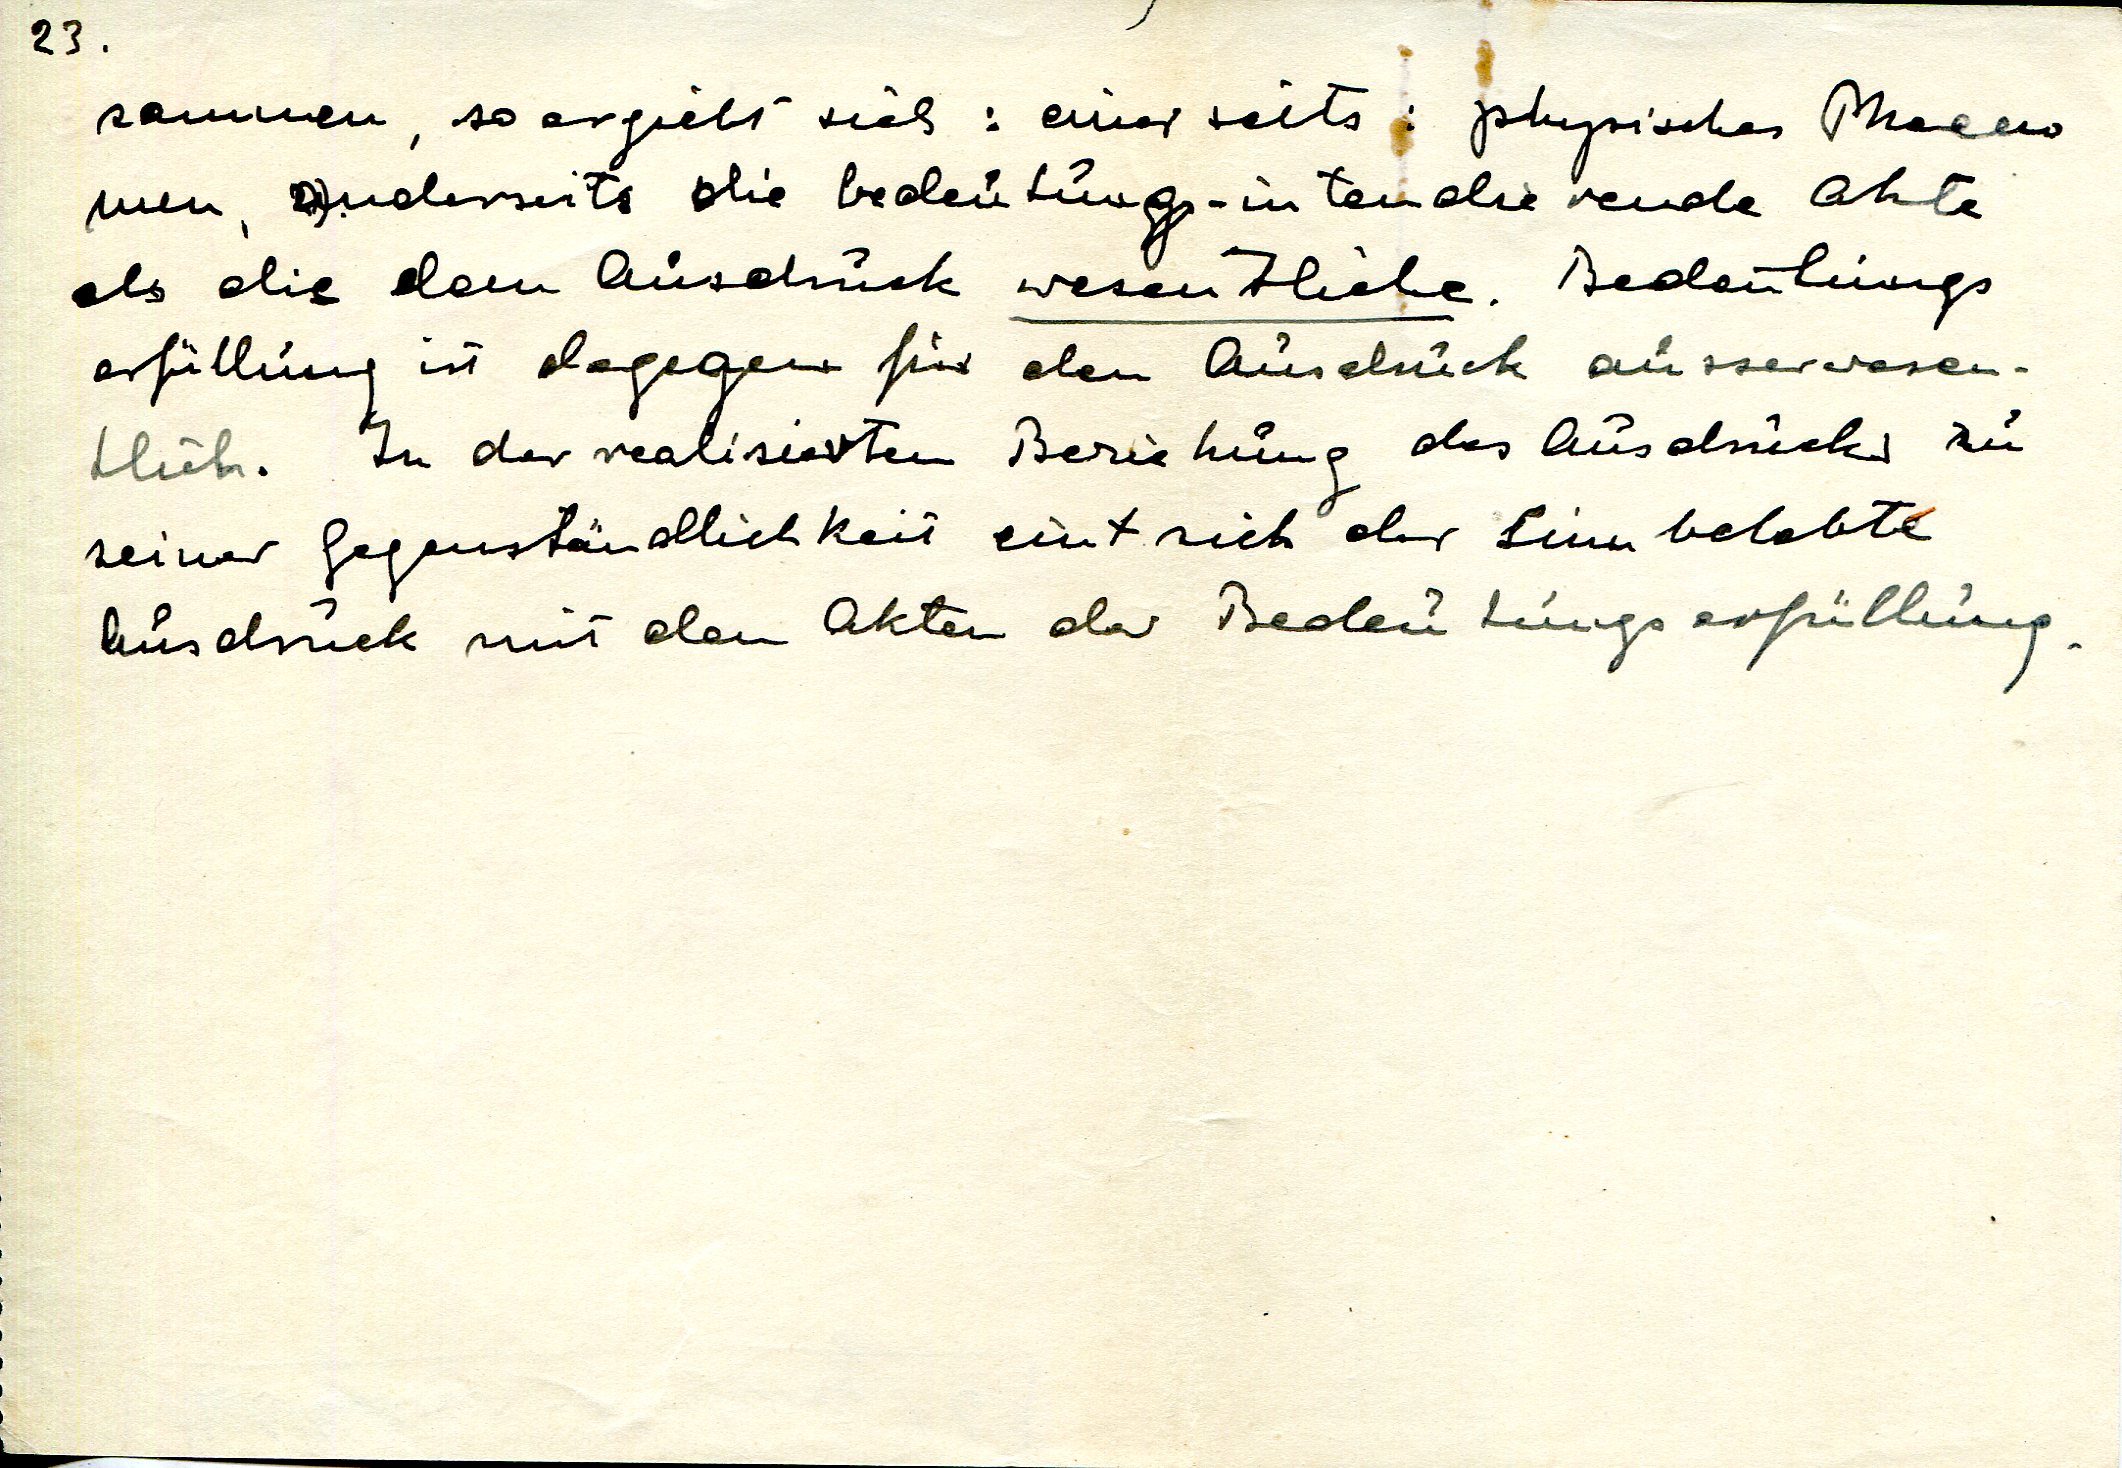 23.
sammen, so ergiebt sich: einerseits: physisches Phaeno
men, anderseits die bedeutungs-intendierende Akte
als die dem Ausdruck wesentliche. Bedeutungs
erfüllung ist dagegen für den Ausdruck ausserwesen-
tlich. In der realisierten Beziehung des Ausdrucks zu
seiner Gegenständlichkeit eint sich der Sinn belebte
Ausdruck mit den Akten der Bedeutungserfüllung.